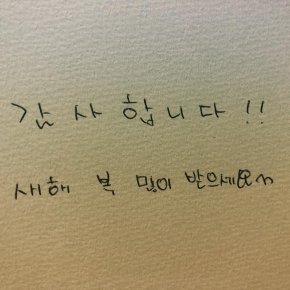 감사합니다!!
새해 복 많이 받으세요~